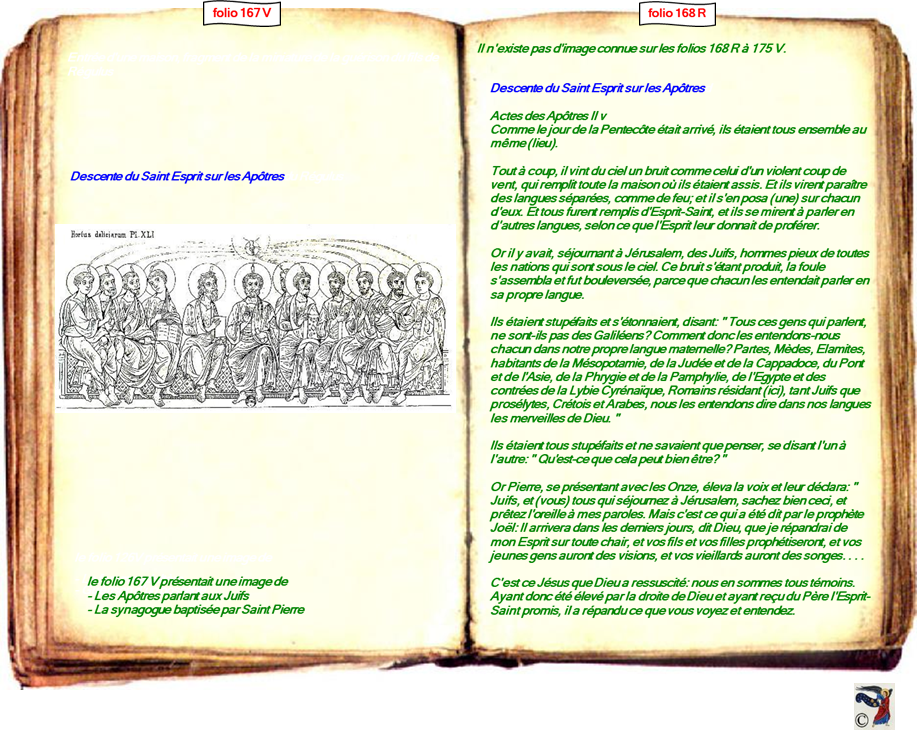 folio 167 V
Descente du Saint Esprit sur les Apôtres
Hortus deliciarum Pl. XLI
le folio 167 V présentait une image de
- Les Apôtres parlant aux Juifs
- La synagogue baptisée par Saint Pierre
folio 168 R
Il n'existe pas d'image connue sur les folios 168 R à 175 V.
Descente du Saint Esprit sur les Apôtres
Actes des Apôtres II v
Comme le jour de la Pentecôte était arrivé, ils étaient tous ensemble au
même (lieu).
Tout à coup, il vint du ciel un bruit comme celui d'un violent coup de
vent, qui remplit toute la maison où ils étaient assis. Et ils virent paraître
des langues séparées, comme de feu; et il s'en posa (une) sur chacun
d'eux. Et tous furent remplis d'Esprit-Saint, et ils se mirent à parler en
d'autres langues, selon ce que l'Esprit leur donnait de proférer.
Or il y avait, séjournant à Jérusalem, des Juifs, hommes pieux de toutes
les nations qui sont sous le ciel. Ce bruit s'étant produit, la foule
s'assembla et fut bouleversée, parce que chacun les entendait parler en
sa propre langue.
Ils étaient stupéfaits et s'étonnaient, disant: " Tous ces gens qui parlent,
ne sont-ils pas des Galiléens? Comment donc les entendons-nous
chacun dans notre propre langue maternelle? Partes, Mèdes, Elamites,
habitants de la Mésopotamie, de la Judée et de la Cappadoce, du Pont
et de l'Asie, de la Phrygie et de la Pamphylie, de l'Egypte et des
contrées de la Lybie Cyrénaïque, Romains résidant (ici), tant Juifs que
prosélytes, Crétois et Arabes, nous les entendons dire dans nos langues
les merveilles de Dieu. "
Ils étaient tous stupéfaits et ne savaient que penser, se disant l'un à
l'autre: " Qu'est-ce que cela peut bien être? "
Or Pierre, se présentant avec les Onze, éleva la voix et leur déclara: "
Juifs, et (vous) tous qui séjournez à Jérusalem, sachez bien ceci, et
prêtez l'oreille à mes paroles. Mais c'est ce qui a été dit par le prophète
Joël: Il arrivera dans les derniers jours, dit Dieu, que je répandrai de
mon Esprit sur toute chair, et vos fils et vos filles prophétiseront, et vos
jeunes gens auront des visions, et vos vieillards auront des songes. . . .
C'est ce Jésus que Dieu a ressuscité: nous en sommes tous témoins.
Ayant donc été élevé par la droite de Dieu et ayant reçu du Père l'Esprit-
Saint promis, il a répandu ce que vous voyez et entendez.
©